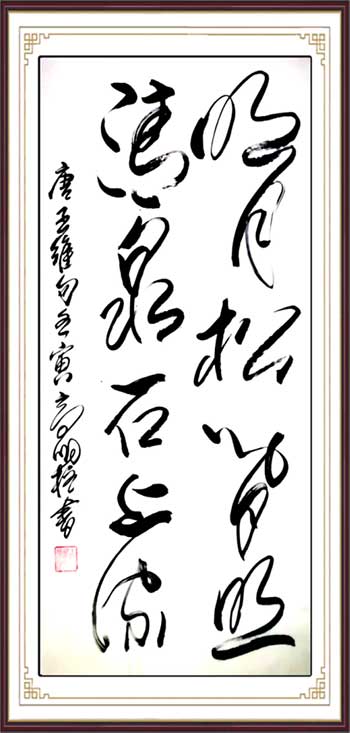 明月松間照
清泉石上流
唐王維句壬寅高明書